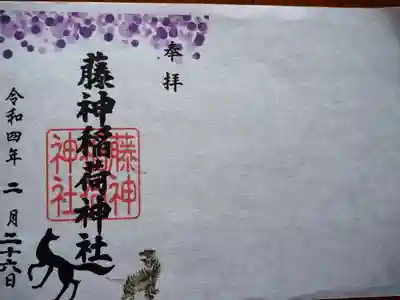 奉拝
藤神稲荷神社
令和四年二月二十六日
藤神
神社